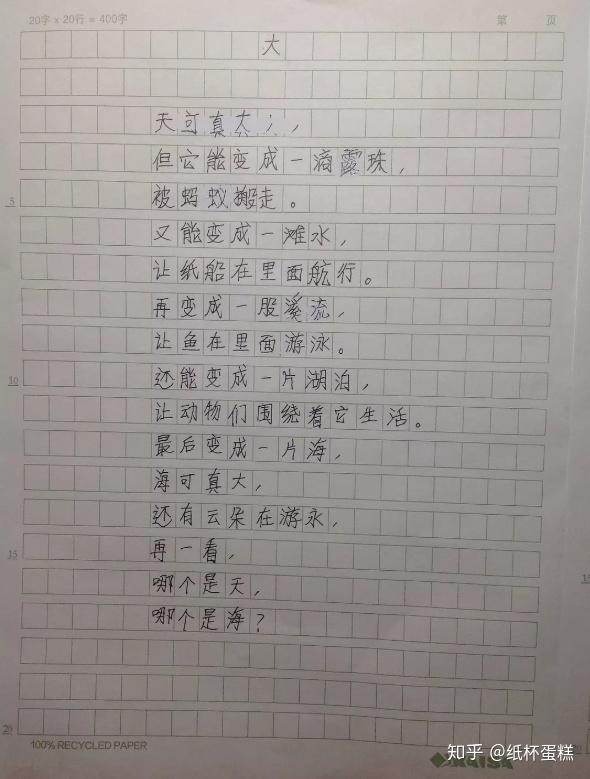 20字 x 20行 = 400字 第 页
大
天可真大，
但它能变成一滴露珠，
被蚂蚁搬走。
5
又能变成一滩水，
让纸船在里面航行。
再变成一股溪流，
让鱼在里面游泳。
还能变成一片湖泊，
10
让动物们围绕着它生活。
最后变成一片海，
海可真大，
还有云朵在游永，
再一看，
15
哪个是天，
哪个是海？
20
100% RECYCLED PAPER
知乎 @纸杯蛋糕